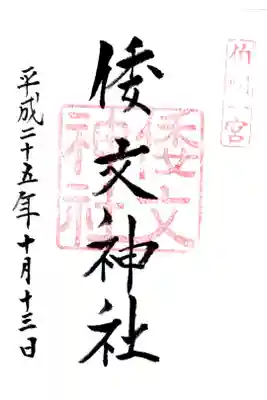 伯州一宮
倭文神社
倭文神社
平成二十五年十月十三日